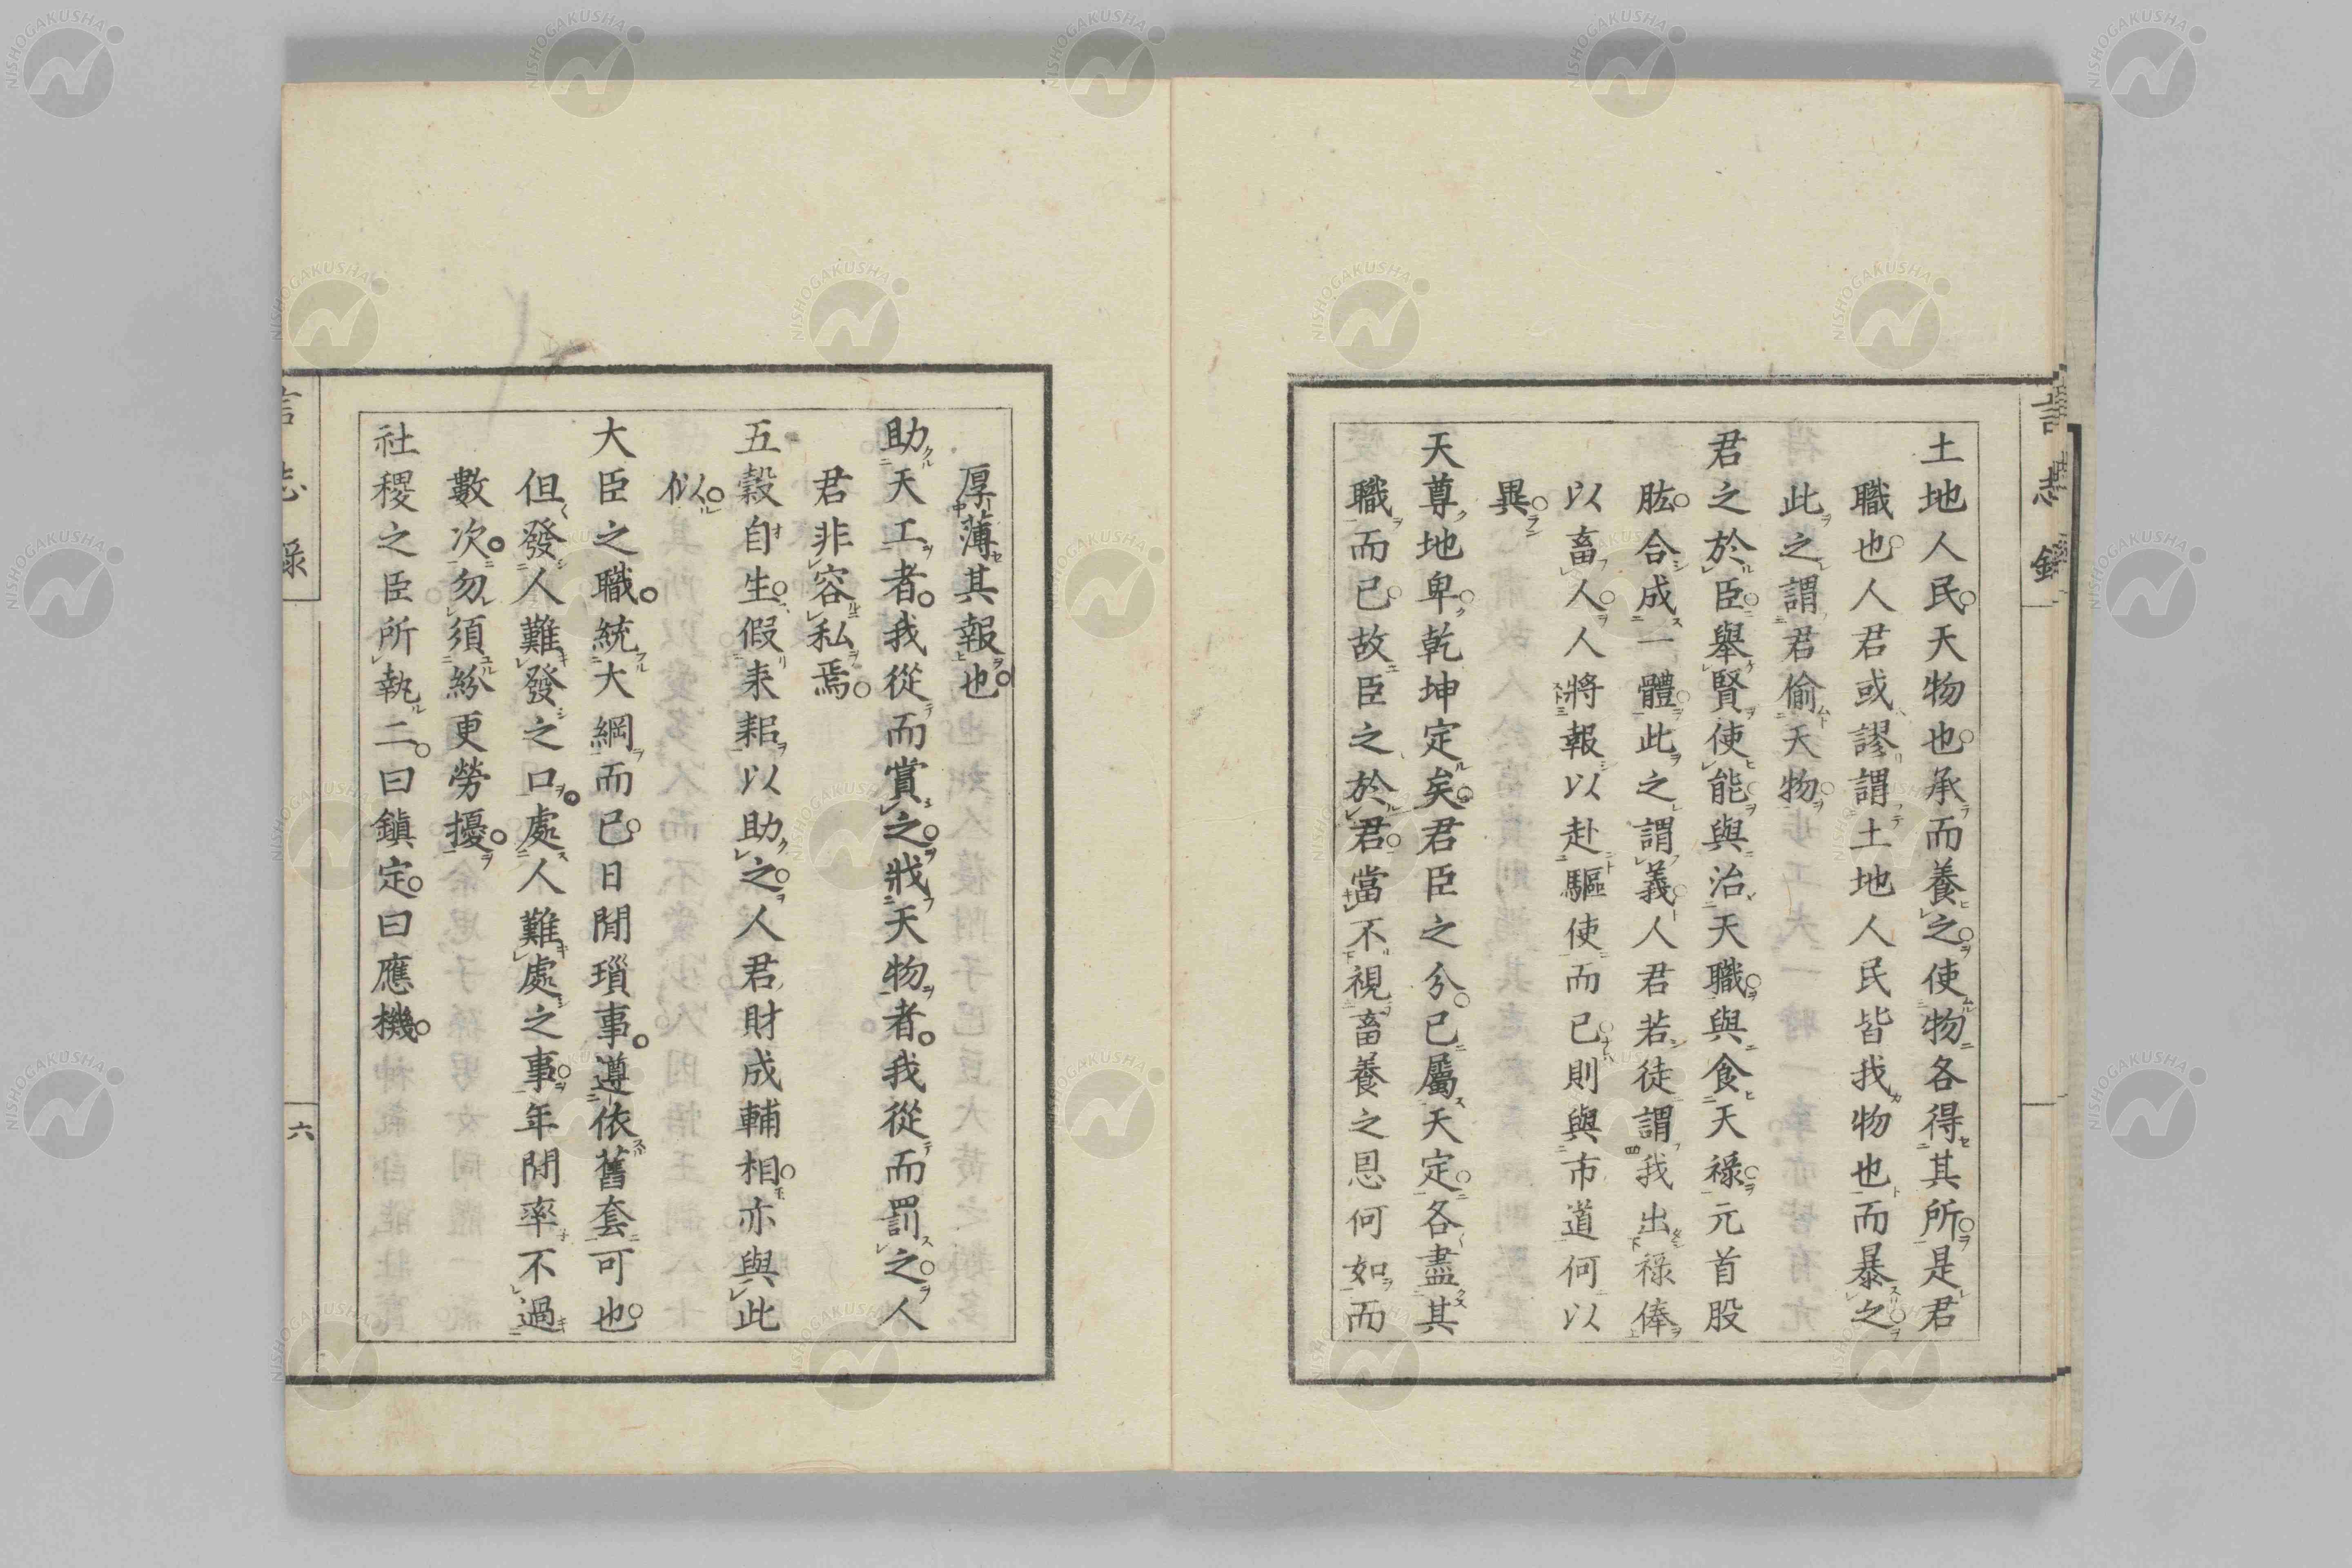 土地人民天物也承而養之使物各得其所是君
職也人君或謬謂土地人民皆我物也而暴之
此之謂君偷天物
君之於臣舉賢使能與治天職與食天祿元首股
肱合成一體此之謂義人君若徒謂我出祿俸
以畜人人將報以赴驅使而已則與市道何以
異
天尊地卑乾坤定矣君臣之分已屬天定各盡其
職而已故臣之於君當不視畜養之恩何如而
厚薄其報也
助天工者我從而賞之戕天物者我從而罰之人
君非容私焉
五穀自生假耒耜以助之人君財成輔相亦與此
似
大臣之職統大綱而已日閒瑣事遵依舊套可也
但發人難發之口處人難處之事年閒率不過
數次勿須紛更勞擾
社稷之臣所執二曰鎮定曰應機
言志錄
六
NISHOGAKUSHA